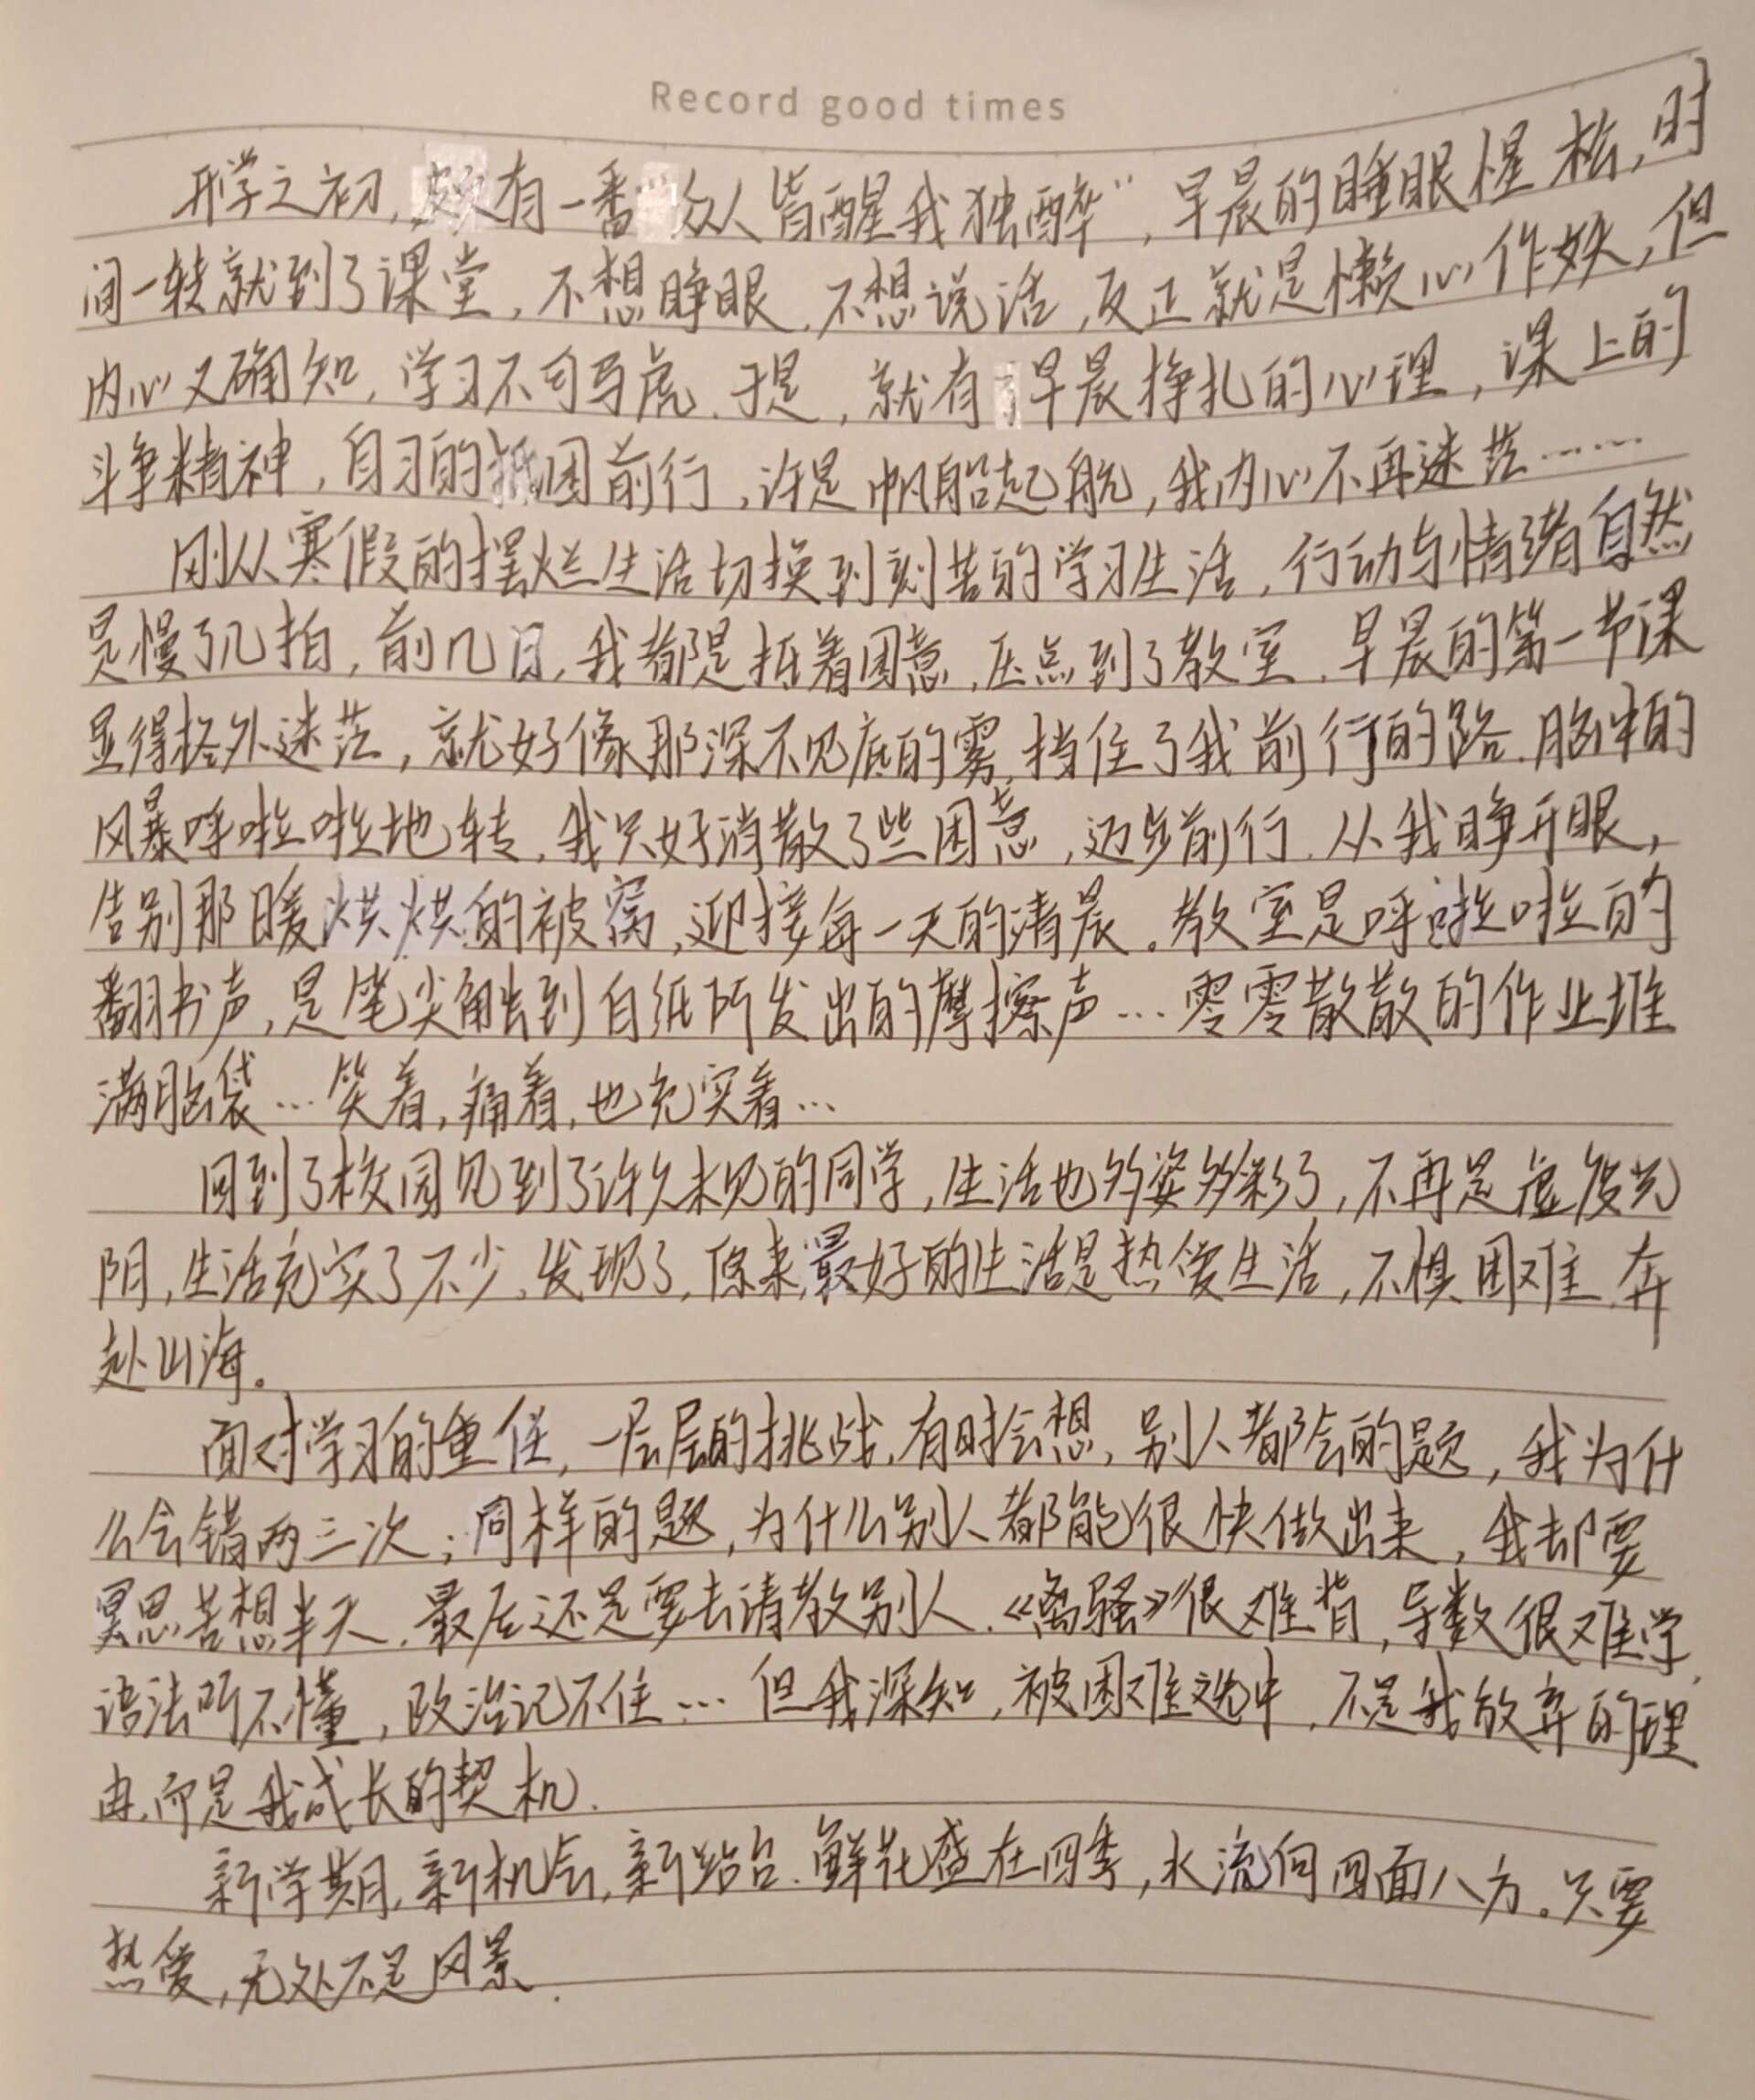 Record good times
开学之初，颇有一番“众人皆醒我独醉”，早晨的睡眼惺松，时
间一转就到了课堂，不想睁眼，不想说话，反正就是懒心作妖，但
内心又确知，学习不可马虎．于是，就有了早晨挣扎的心理，课上的
斗争精神，自习的抵困前行，许是帆船起航，我内心不再迷茫……
刚从寒假的摆烂生活切换到刻苦的学习生活，行动与情绪自然
是慢了几拍，前几日，我都是抵着困意，压点到了教室．早晨的第一节课
显得格外迷茫，就好像那深不见底的雾，挡住了我前行的路．脑中的
风暴呼啦啦地转，我只好消散了些困意，迈步前行．从我睁开眼，
告别那暖烘烘的被窝，迎接每一天的清晨。教室是呼啦啦的
翻书声，是笔尖触到白纸所发出的摩擦声…零零散散的作业堆
满脑袋…笑着，痛着，也充实着…
回到了校园见到了许久未见的同学，生活也多姿多彩了，不再是虚度光
阴，生活充实了不少．发现了，原来，最好的生活是热爱生活，不惧困难，奔
赴山海。
面对学习的重任，一层层的挑战，有时会想，别人都会的题，我为什
么会错两三次；同样的题，为什么别人都能很快做出来，我却要
冥思苦想半天．最后还是要去请教别人．《离骚》很难背，导数很难学，
语法听不懂，政治记不住…但我深知，被困难选中，不是我放弃的理
由，而是我成长的契机．
新学期，新机会，新站台．鲜花盛在四季，水流向四面八方。只要
热爱，无处不是风景．